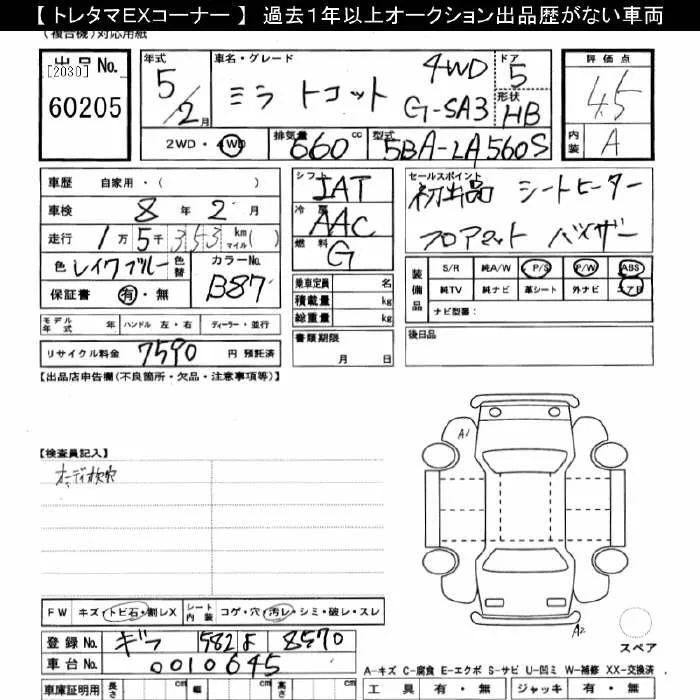 【トレタマEXコーナー】 過去1年以上オークション出品歴がない車両
(複合機)対応用紙
出品No.
[2030]
60205
年式 5/2月
車名・グレード ミラ トコット 4WD G-SA3
ドア 5
形状 HB
評価点 4.5
内装 A
2WD・4WD
排気量 660 cc
型式 5BA-LA560S
車歴 自家用・( )
車検 8年2月
走行 1万5千353 km マイル( )
色 レイクブルー 色替
カラーNo. B87
保証書 有・無
シフト IAT
冷房 AAC
燃料 G
セールスポイント
初出品 シートヒーター
フロアマット バイザー
乗車定員 名
積載量 kg
総重量 kg
装備品
S/R 純A/W P/S P/W ABS
純TV 純ナビ 革シート 外ナビ エアB
ナビ型番:
モデル年式 年 ハンドル 左・右 ディーラー・並行
リサイクル料金 7590 円 預託済
書類期限
月 日
後日品
【出品店申告欄(不良箇所・欠品・注意事項等)】
【検査員記入】
A1
FW キズ・トビ石・割レX
シート内装 コゲ・穴・汚レ・シミ・破レ・スレ
登録No. ギフ 582 よ 8570
車台No. 0010645
A2
スペア
A-キズ C-腐食 E-エクボ S-サビ U-凹ミ W-補修 XX-交換済
車庫証明用 長さ cm 幅 cm 高さ cm
工具 有・無 ジャッキ 有・無